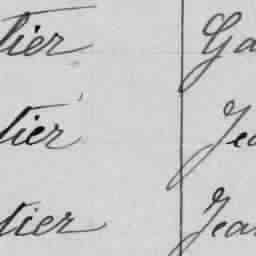 tier Ga
tier Jea
tier Jea